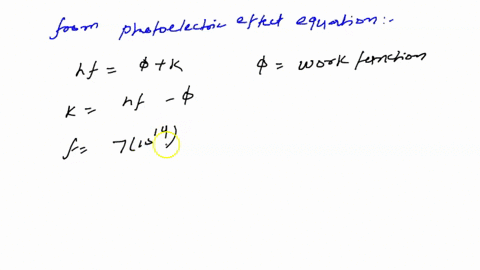 from photoelectric effect equation:-
hf = ϕ + k
ϕ = work function
k = hf - ϕ
f = 7(10^14)